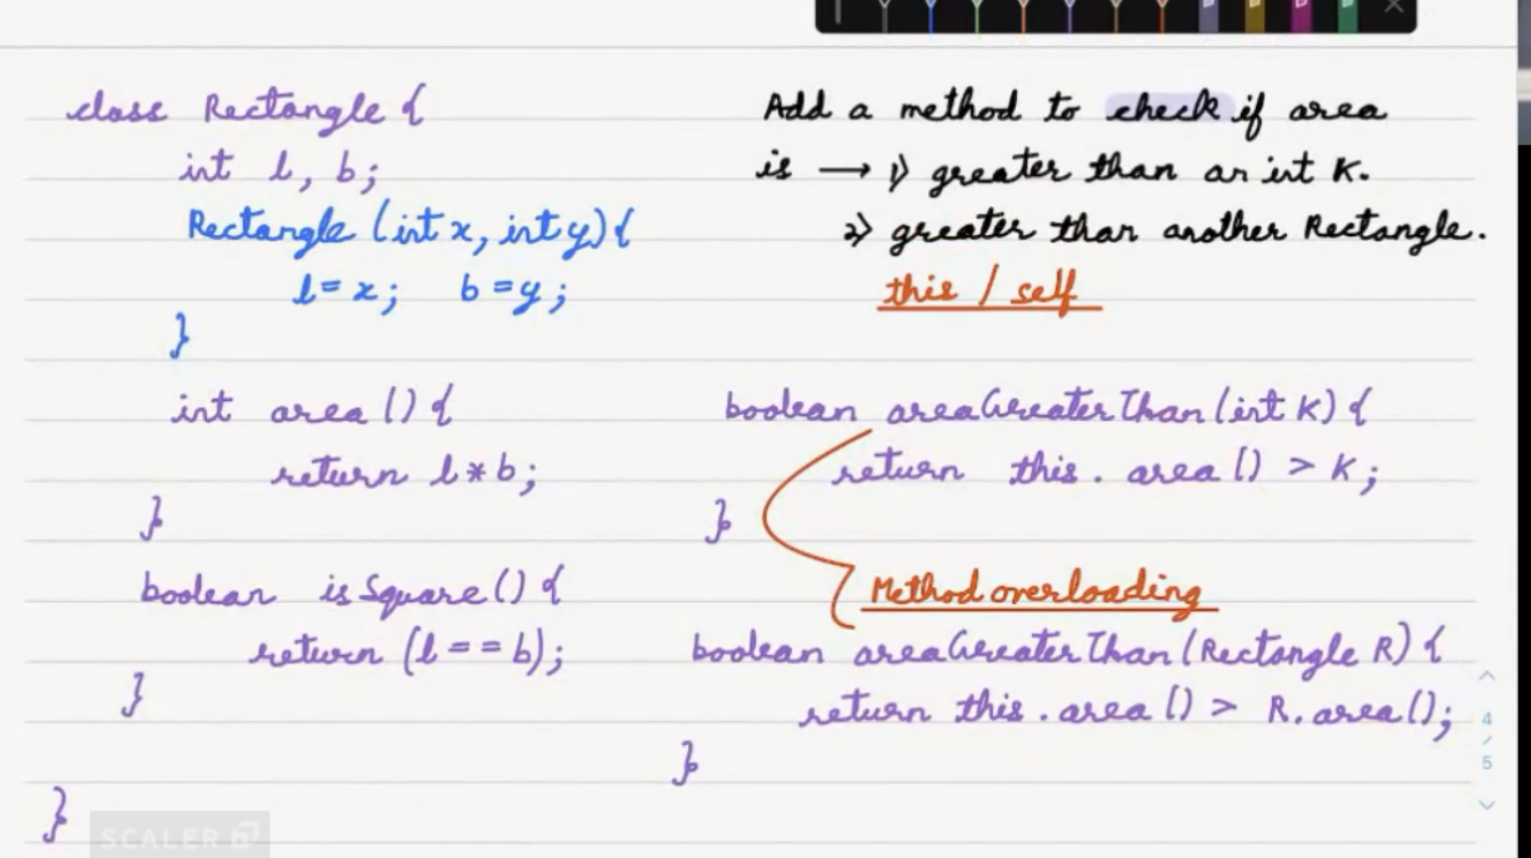 class Rectangle {
int l, b;
Rectangle (int x, int y) {
l = x; b = y;
}
int area () {
return l * b;
}
boolean isSquare () {
return (l == b);
}
}
Add a method to check if area
is → 1) greater than an int K.
2) greater than another Rectangle.
this / self
boolean areaGreaterThan (int K) {
return this. area () > K;
}
Method overloading
boolean areaGreaterThan (Rectangle R) {
return this. area () > R. area ();
}
4
/
5
SCALER